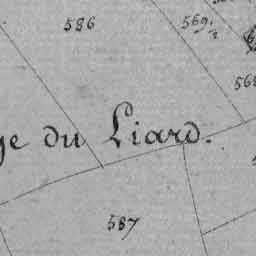 586
569.
2
568
ge du Liard.
587